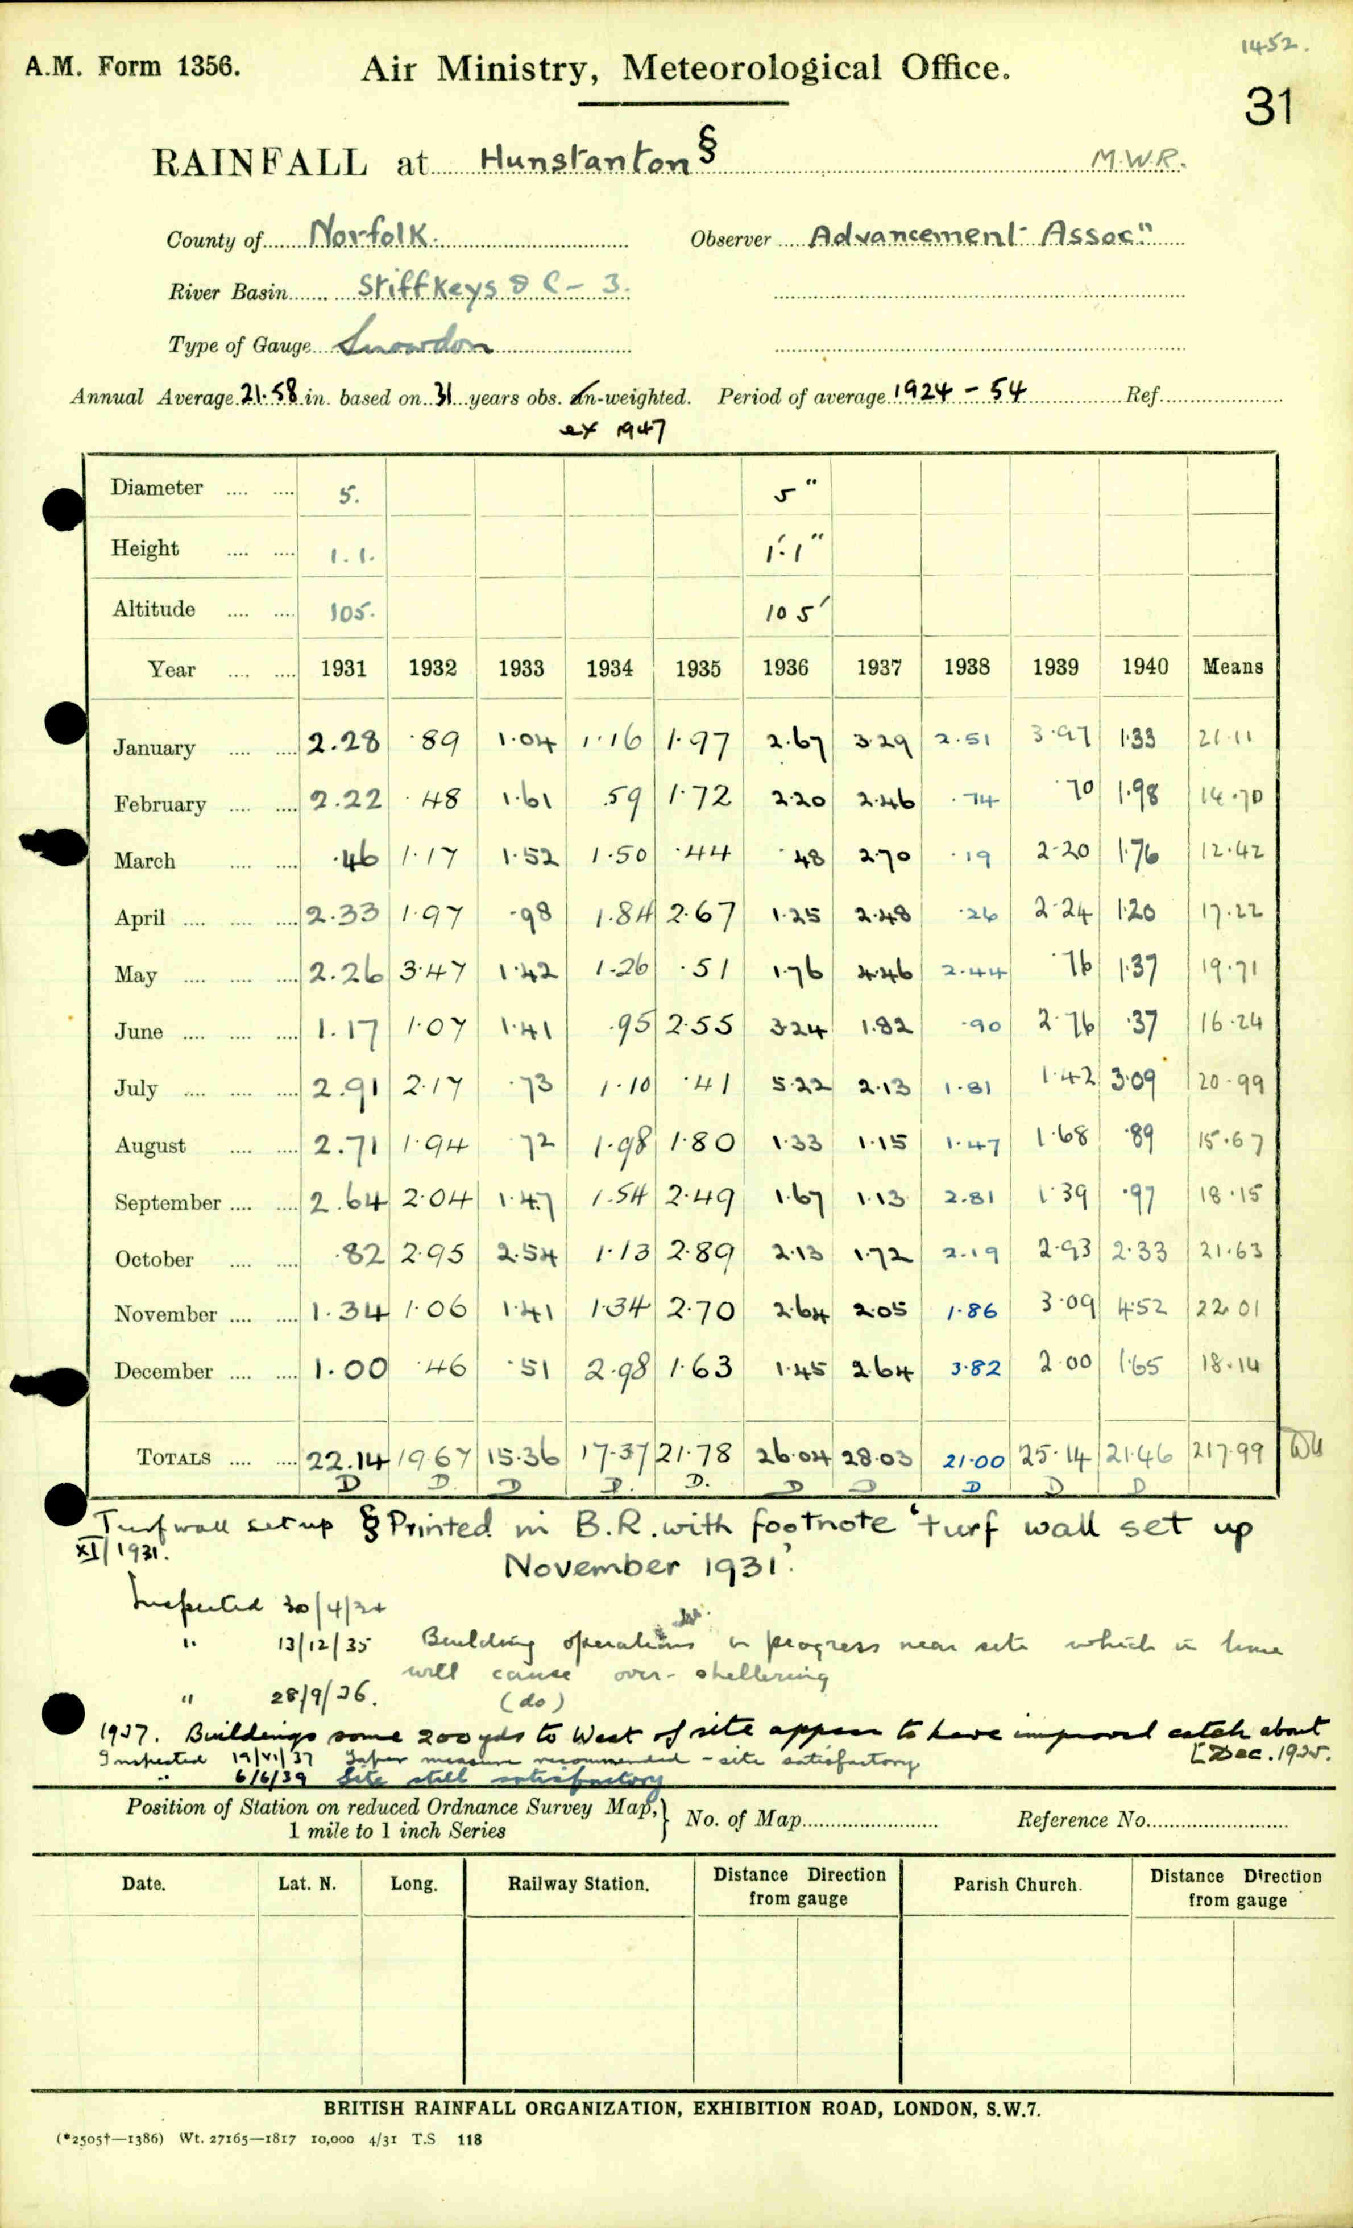 1452.
A.M. Form 1356. Air Ministry, Meteorological Office.
31
RAINFALL at Hunstanton § M.W.R.
County of Norfolk. Observer Advancement Assocn
River Basin Stiffkeys & C - 3.
Type of Gauge Snowdon
Annual Average 21.58 in. based on 31 years obs. un-weighted. Period of average 1924 - 54 Ref.
ex 1947
Diameter 5. 5"
Height 1.1. 1'.1"
Altitude 105. 105'
Year 1931 1932 1933 1934 1935 1936 1937 1938 1939 1940 Means
January 2.28 .89 1.04 1.16 1.97 2.67 3.29 2.51 3.97 1.33 21.11
February 2.22 .48 1.61 .59 1.72 2.20 2.46 .74 .70 1.98 14.70
March .46 1.17 1.52 1.50 .44 .48 2.70 .19 2.20 1.76 12.42
April 2.33 1.97 .98 1.84 2.67 1.25 2.48 .26 2.24 1.20 17.22
May 2.26 3.47 1.42 1.26 .51 1.76 4.46 2.44 .76 1.37 19.71
June 1.17 1.07 1.41 .95 2.55 3.24 1.82 .90 2.76 .37 16.24
July 2.91 2.17 .73 1.10 .41 5.22 2.13 1.81 1.42 3.09 20.99
August 2.71 1.94 .72 1.98 1.80 1.33 1.15 1.47 1.68 .89 15.67
September 2.64 2.04 1.47 1.54 2.49 1.67 1.13 2.81 1.39 .97 18.15
October .82 2.95 2.54 1.13 2.89 2.13 1.72 2.19 2.93 2.33 21.63
November 1.34 1.06 1.41 1.34 2.70 2.64 2.05 1.86 3.09 4.52 22.01
December 1.00 .46 .51 2.98 1.63 1.45 2.64 3.82 2.00 1.65 18.14
TOTALS 22.14 19.67 15.36 17.37 21.78 26.04 28.03 21.00 25.14 21.46 217.99
D D. D D. D. D D D D D
Turf wall set up § Printed in B.R. with footnote 'turf wall set up
XI/1931. November 1931'.
Inspected 30/4/34
" 13/12/35 Building operations in progress near site which in time
will cause over-sheltering
" 28/9/36. (do)
1937. Buildings some 200 yds to West of site appear to have improved catch about
[Dec. 1935.
Inspected 19/VI/37 Taper measure recommended - site satisfactory
" 6/6/39 Site still satisfactory
Position of Station on reduced Ordnance Survey Map, } No. of Map Reference No.
1 mile to 1 inch Series
Date. Lat. N. Long. Railway Station. Distance Direction from gauge Parish Church. Distance Direction from gauge
BRITISH RAINFALL ORGANIZATION, EXHIBITION ROAD, LONDON, S.W.7.
(*2505†—1386) Wt. 27165—1817 10,000 4/31 T.S 118